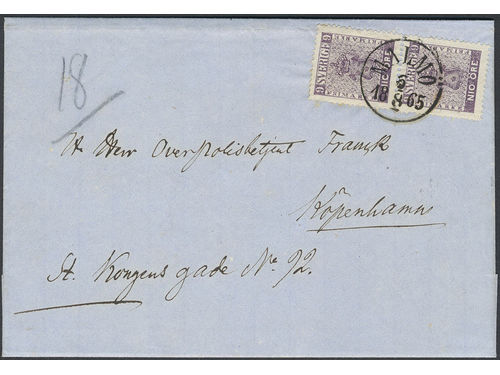 18
SVERIGE
NIO ÖRE
SVERIGE
NIO ÖRE
FRIMÄRKE
MALMÖ
18 65
Herr Overpolisbetjent Franck
Köpenhamn
St. Kongens gade No. 92.